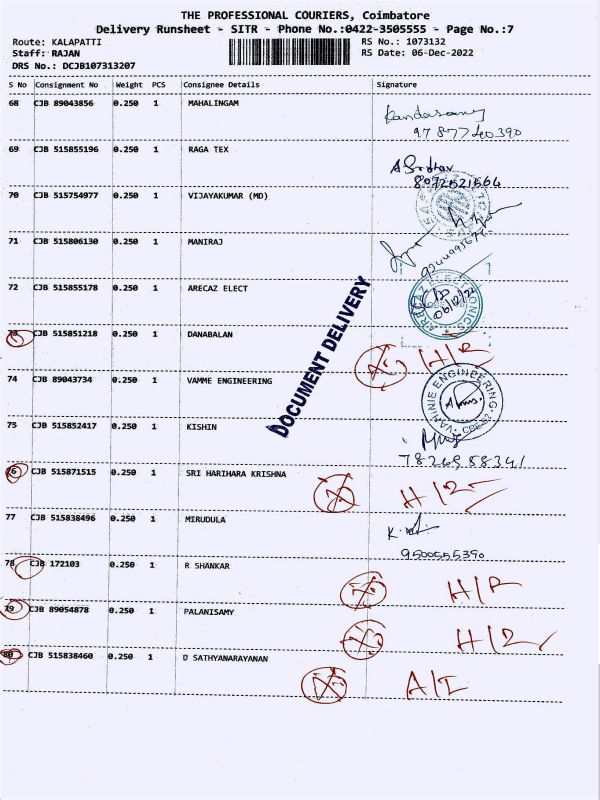 THE PROFESSIONAL COURIERS, Coimbatore
Delivery Runsheet - SITR - Phone No.:0422-3505555 - Page No.:7
Route: KALAPATTI RS No.: 1073132
Staff: RAJAN RS Date: 06-Dec-2022
DRS No.: DCJB107313207
S No Consignment No Weight PCS Consignee Details Signature
68 CJB 89043856 0.250 1 MAHALINGAM
Kandasamy
9787740390
69 CJB 515855196 0.250 1 RAGA TEX
8072521564
70 CJB 515754977 0.250 1 VIJAYAKUMAR (MD)
71 CJB 515806130 0.250 1 MANIRAJ
72 CJB 515855178 0.250 1 ARECAZ ELECT
ARECAZ ELECTRONICS
06/12/22
73 CJB 515851218 0.250 1 DANABALAN H/R
DOCUMENT DELIVERY
74 CJB 89043734 0.250 1 VAMME ENGINEERING
ENGINEERING
75 CJB 515852417 0.250 1 KISHIN
7824958341
76 CJB 515871515 0.250 1 SRI HARIHARA KRISHNA H/R
77 CJB 515838496 0.250 1 MIRUDULA
9500555390
78 CJB 172103 0.250 1 R SHANKAR H/R
79 CJB 89054878 0.250 1 PALANISAMY H/R
80 CJB 515838460 0.250 1 D SATHYANARAYANAN A/I